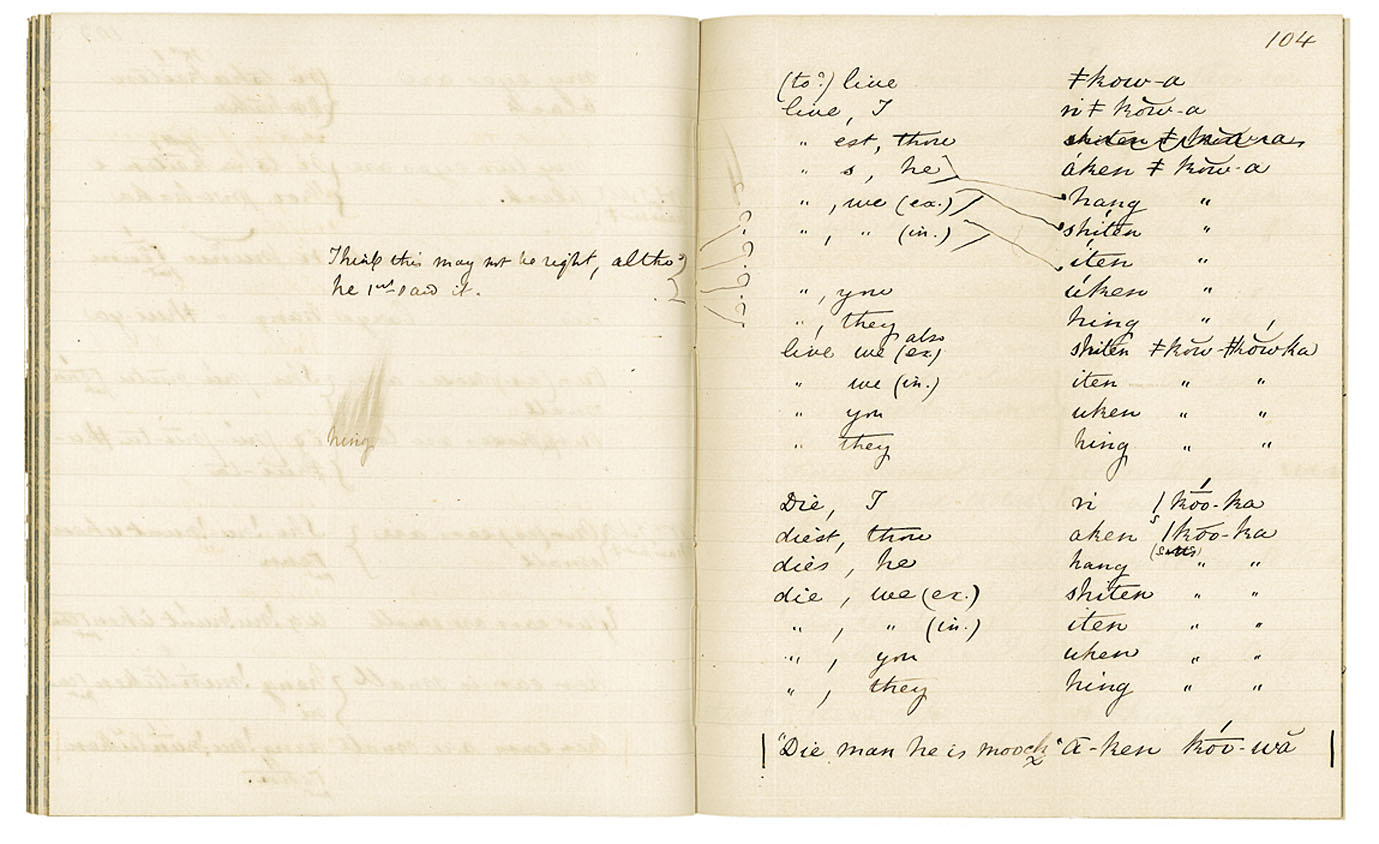 Think this may not be right, altho'
he 1st said it.
hing
104
(to?) live ǂkow-a
live, I ń ǂ kŏw-a
" est, thou
" s, he áken ǂ kŏw-a
", we (ex.) hang "
", " (in.) shíten "
íten "
", you úken "
", they hing "
also
live we (ex) shiten ǂkŏw-ǂkŏwka
" we (in.) iten " "
" you uken " "
" they hing " "
Die, I ń /kóo-ka
diest, thou aken /kóo-ka
dies, he hang " "
die, we (ex.) shiten " "
", " (in.) iten " "
", you uken " "
", they hing " "
"Die man he is mooch" ā-ken kóo-wă